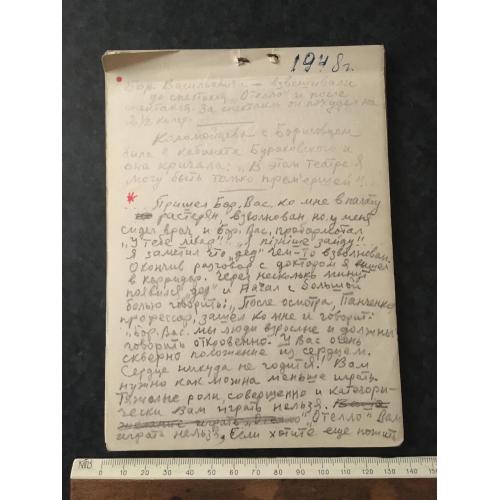 1948г.
Бор. Васильевича – взвешивали
до спектакля „Отелло" и после
спектакля. За спектакль он похудел на
2½ килогр.
Коломойцева с Борисовцем
была у кабинета Бураковского и
она кричала: „В этом театре я
могу быть только премьершей"!...
Пришел Бор. Вас. ко мне в палату
растерян, взволнован но, у меня
сидел врач и Бор. Вас. пробормотал
„У тебе лікар"... „я пізніше зайду"!
Я заметил что „дед" чем-то взволнован.
Окончив разговор с доктором я вышел
в корридор. Через несколько минут
появился „дед" и начал с большой
болью говорить: „После осмотра, Панченко
профессор, зашел ко мне и говорит:
„Бор. Вас. мы люди взрослые и должны
говорить откровенно. У Вас очень
скверно положение из сердцем.
Сердце никуда не годится! Вам
нужно как можна меньше играть.
Тяжолые роли, совершенно и категори-
чески Вам играть нельзя.
„Отелло" Вам
играть нельзя, Если хотите еще пожить
10 20 30 40 50 60 70 80 90 100 110 120 130 140 150